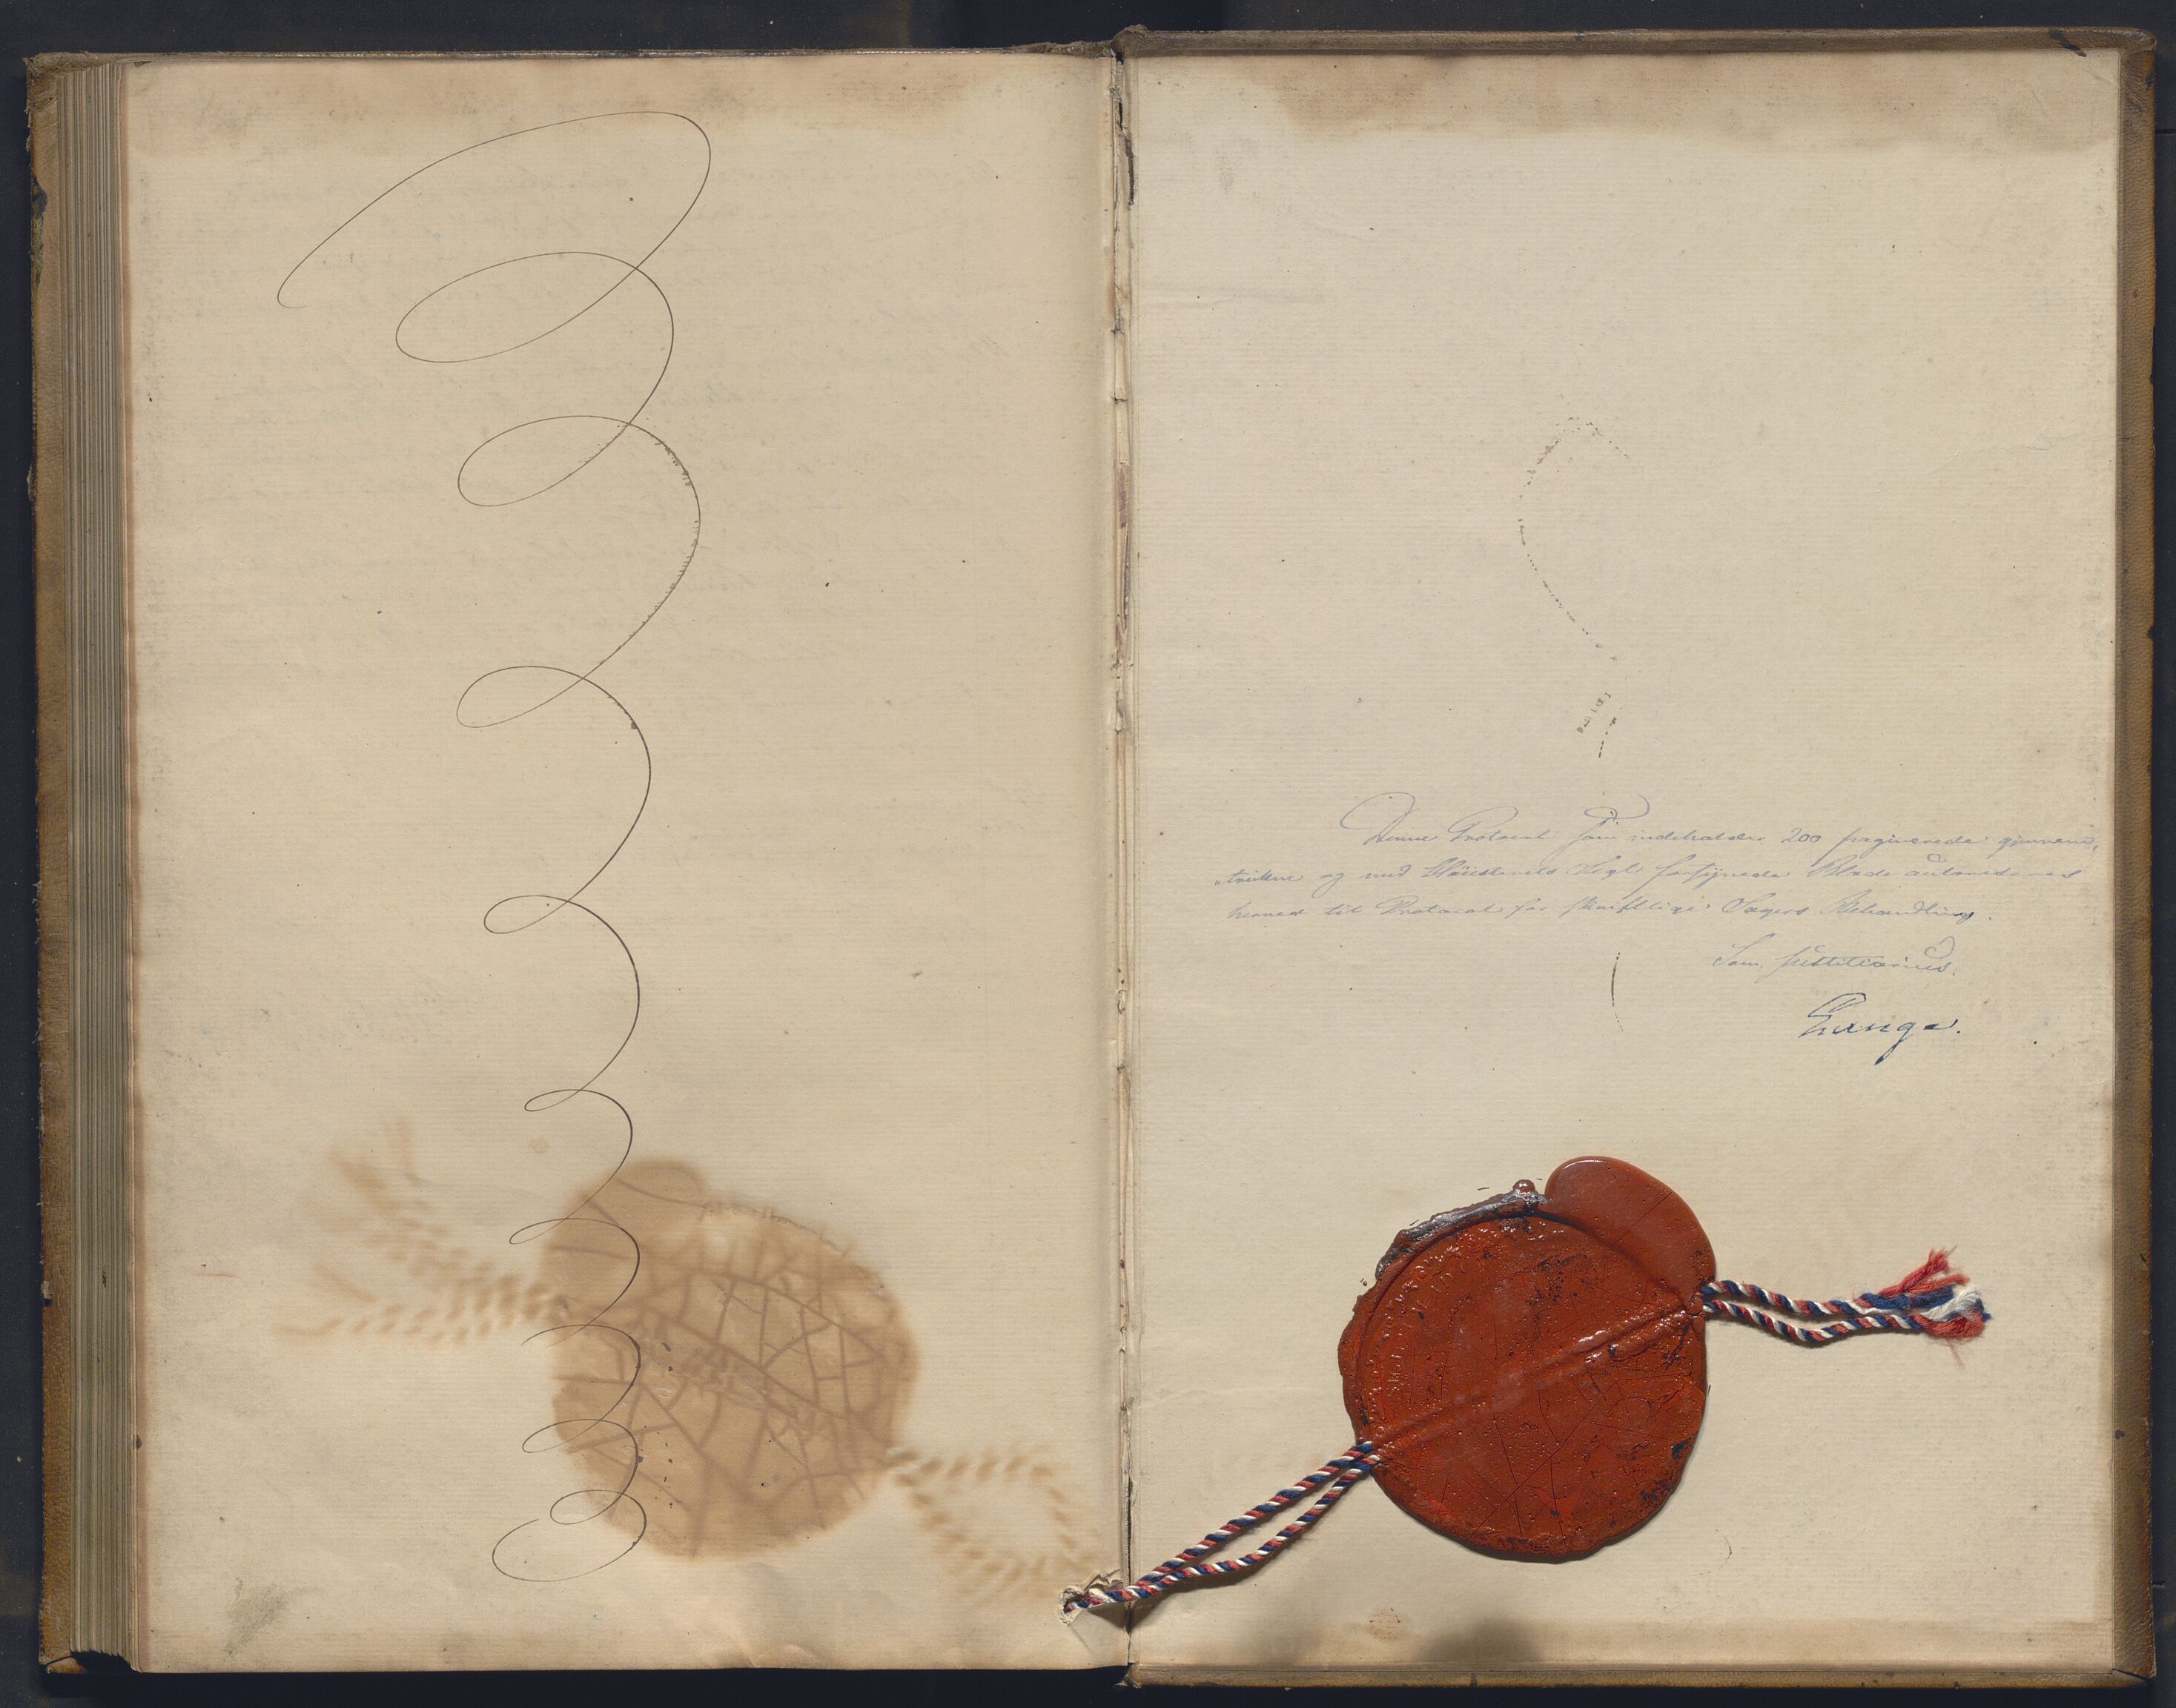 Denne Protocol som indeholder 200 paginerede gjennem,
„trukne og med Segl forsynede Blade autoriseres
herved til Protocol for skriftlige Sagers Behandling.
Som Justitiarius.